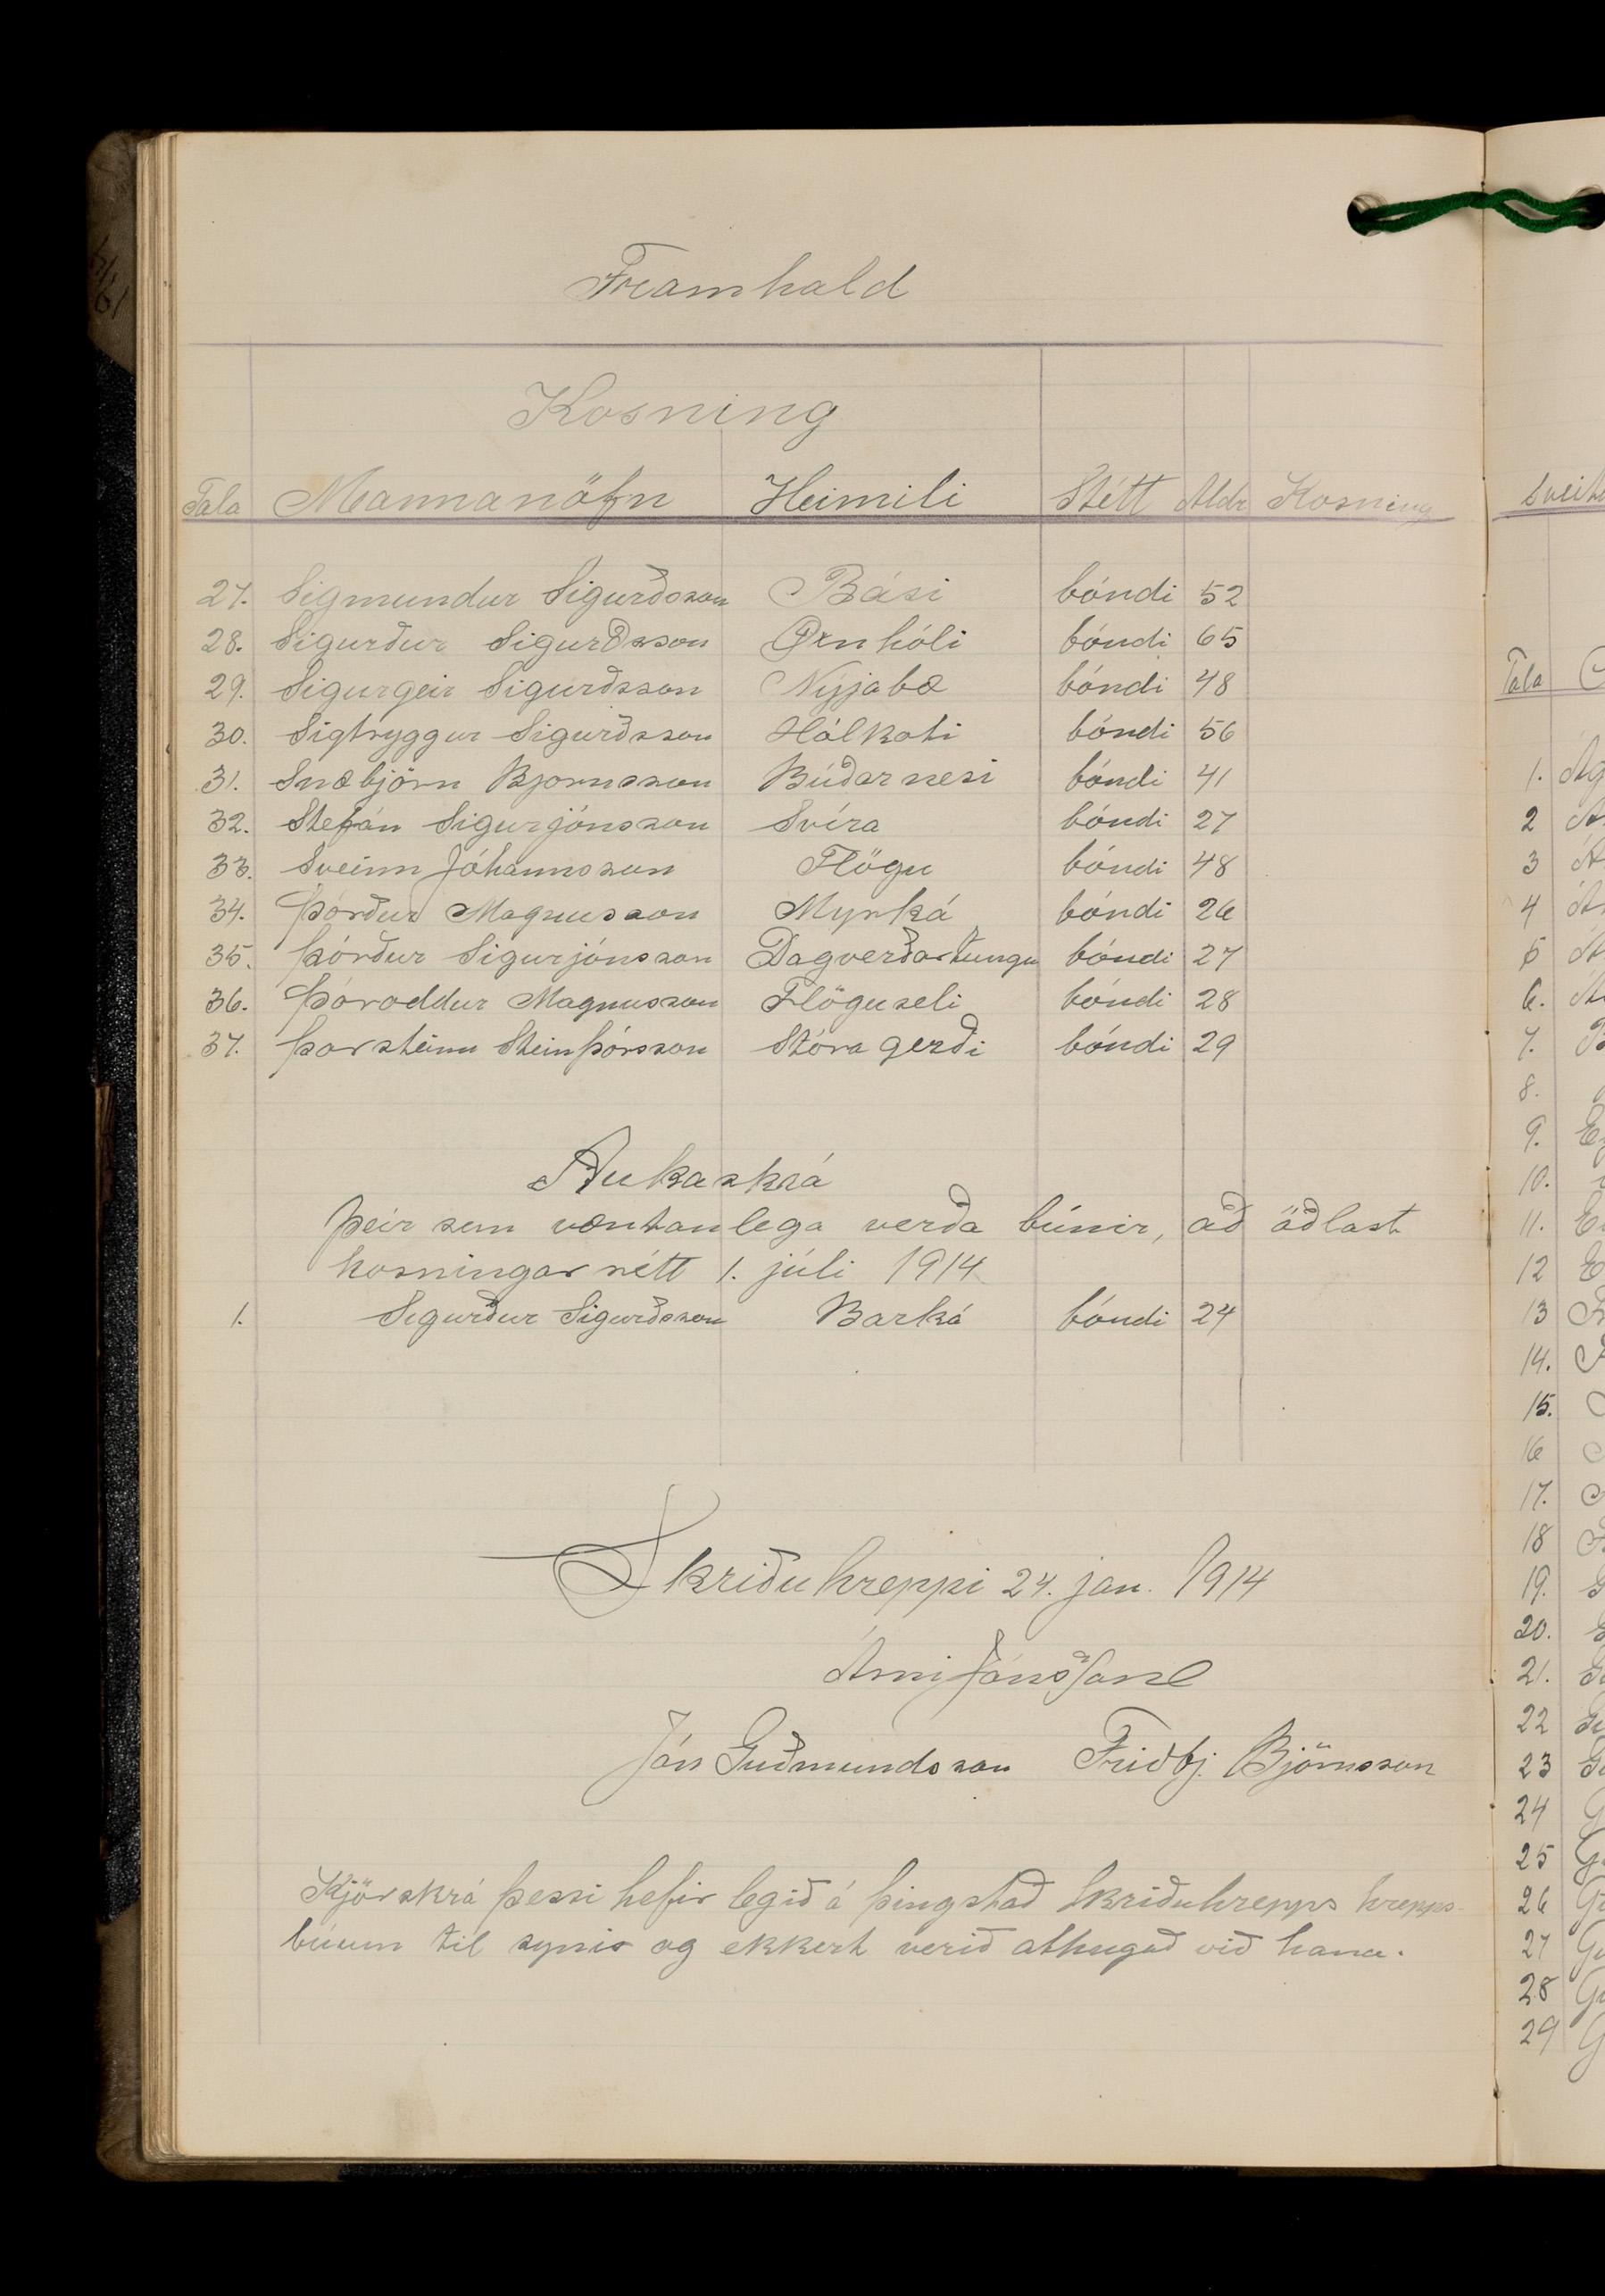 Framhald
Kosning
Tala Mannanöfn Heimili Stétt Aldr Kosning
27. Sigmundur Sigurðsson Bási bóndi 52
28. Sigurður Sigurðsson Øxnhóli bóndi 65
29. Sigurgeir Sigurðsson Nýjabæ bóndi 48
30. Sigtryggur Sigurðsson Hálkoti bóndi 56
31. Snæbjörn Bjornsson Búðarnesi bóndi 41
32. Stefán Sigurjónsson Svíra bóndi 27
33. Sveinn Jóhannsson Flögu bóndi 48
34. Þórður Magnusson Myrká bóndi 26
35. Þórður Sigurjónsson Dagverðartungu bóndi 27
36. Þóroddur Magnusson Flöguseli bóndi 28
37. Þorsteinn Steinþórsson Stóragerði bóndi 29
Aukaskrá
Þeir sem væntanlega verða búnir, að öðlast
kosningarrétt 1. júli 1914
1. Sigurður Sigurðsson Barká bóndi 24
Skriðuhreppi 24. jan. 1914
Árni Jónsson
Jón Guðmundsson Friðbj. Björnsson
Kjörskrá þessi hefir legið á þingstað Skriðuhrepps hrepps-
búum til synis og ekkert verið athugað við hana.
Tala
1.
2
3
4
5
6.
7.
8.
9.
10.
11.
12
13
14.
15.
16
17.
18
19.
20.
21.
22
23
24
25
26
27
28
29